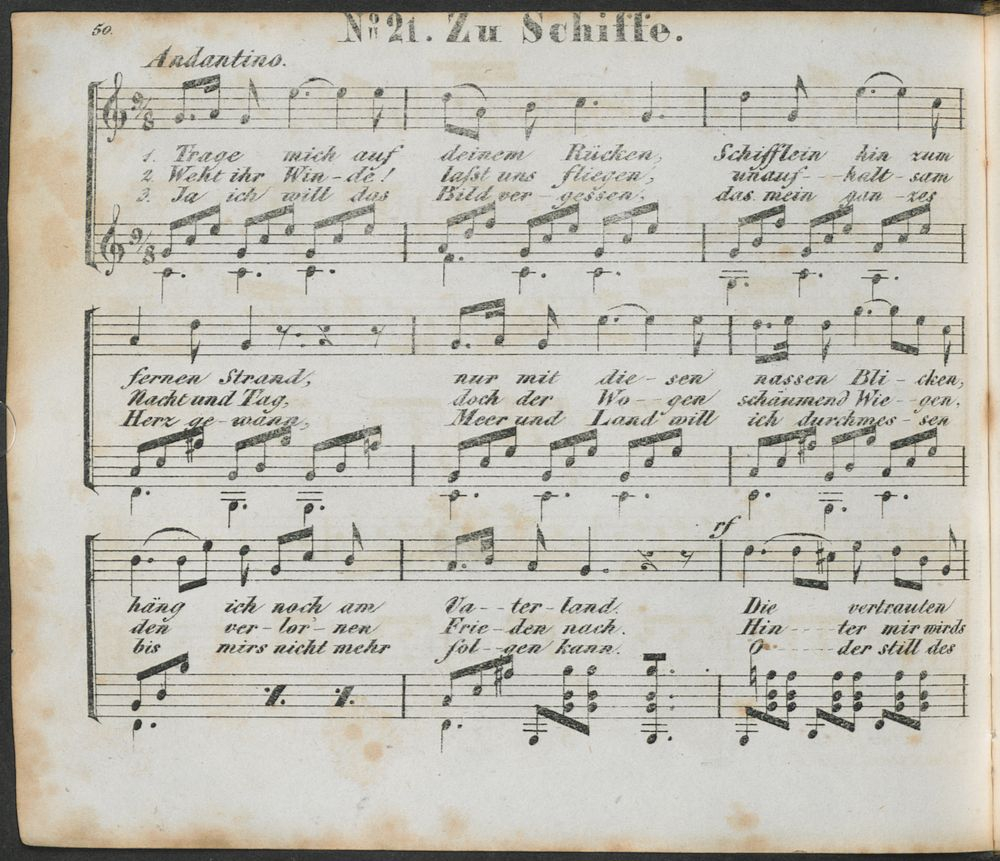 50.
No 21. Zu Schiffe.
Andantino.
1. Trage mich auf deinem Rücken, Schifflein hin zum
2. Weht ihr Win-de! laſst uns fliegen, unauf--halt-sam
3. Ja ich will das Bild ver-gessen, das mein gan-zes
fernen Strand, nur mit die-sen nassen Bli-cken,
Nacht und Tag, doch der Wo--gen schäumend Wie--gen,
Herz ge-wann, Meer und Land will ich durchmes-sen
rf
häng ich noch am Va--ter-land. Die vertrauten
den ver-lor-nen Frie-den nach. Hin---ter mir wirds
bis mirs nicht mehr fol--gen kann. O-----der still des